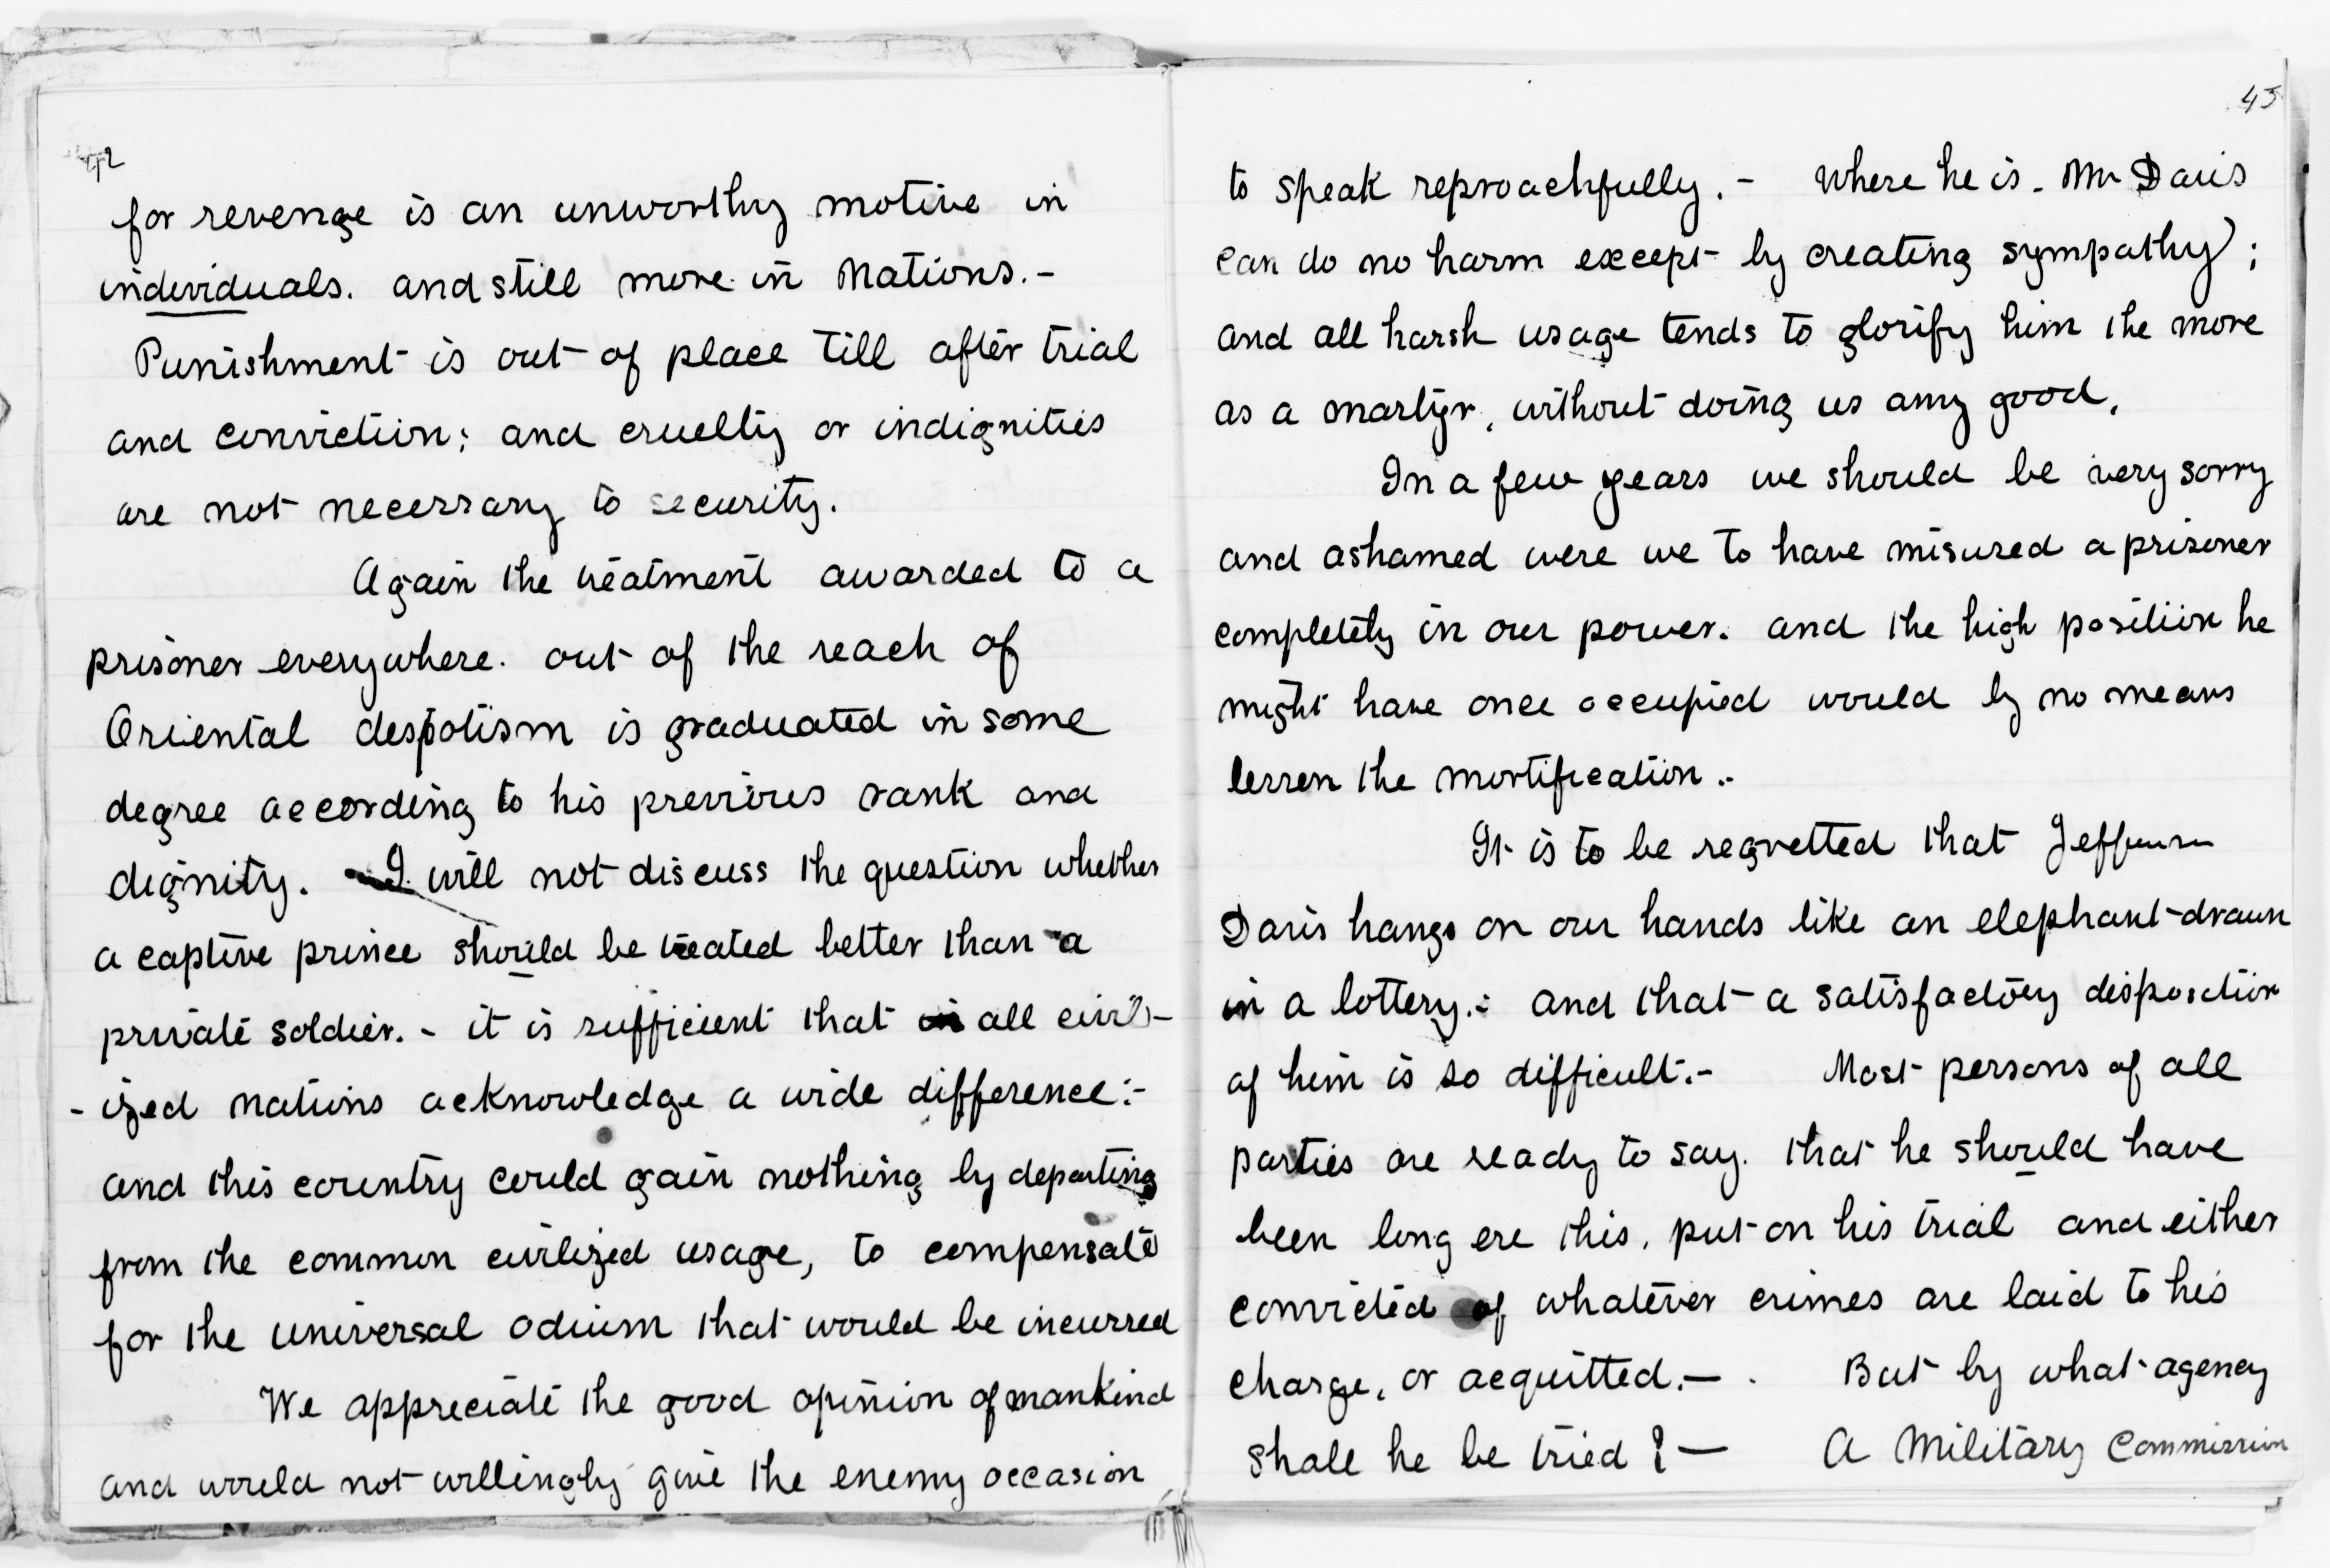 42
for revenge is an unworthy motive in
individuals. and still more in Nations.-
Punishment is out of place till after trial
and conviction; and cruelty or indignities
are not necessary to security.
Again the treatment awarded to a
prisoner everywhere. out of the reach of
Oriental despotism is graduated in some
degree according to his previous rank and
dignity. I will not discuss the question whether
a captive prince should be treated better than a
private soldier. - it is sufficient that in all civil-
- ized nations acknowledge a wide difference:-
and this country could gain nothing by departing
from the common civilized usage, to compensate
for the universal odium that would be incurred
We appreciate the good opinion of mankind
and would not willingly give the enemy occasion
43
to speak reproachfully. - Where he is. Mr Davis
can do no harm except by creating sympathy;
and all harsh usage tends to glorify him the more
as a martyr, without doing us any good.
In a few years we should be very sorry
and ashamed were we to have misused a prisoner
completely in our power. and the high position he
might have once occupied would by no means
lessen the mortification.-
It is to be regretted that Jefferson
Davis hangs on our hands like an elephant drawn
in a lottery.: and that a satisfactory disposition
of him is so difficult.- Most persons of all
parties are ready to say. that he should have
been long ere this, put on his trial and either
convicted of whatever crimes are laid to his
charge, or acquitted.- . But by what agency
shall he be tried ? — A Military Commission